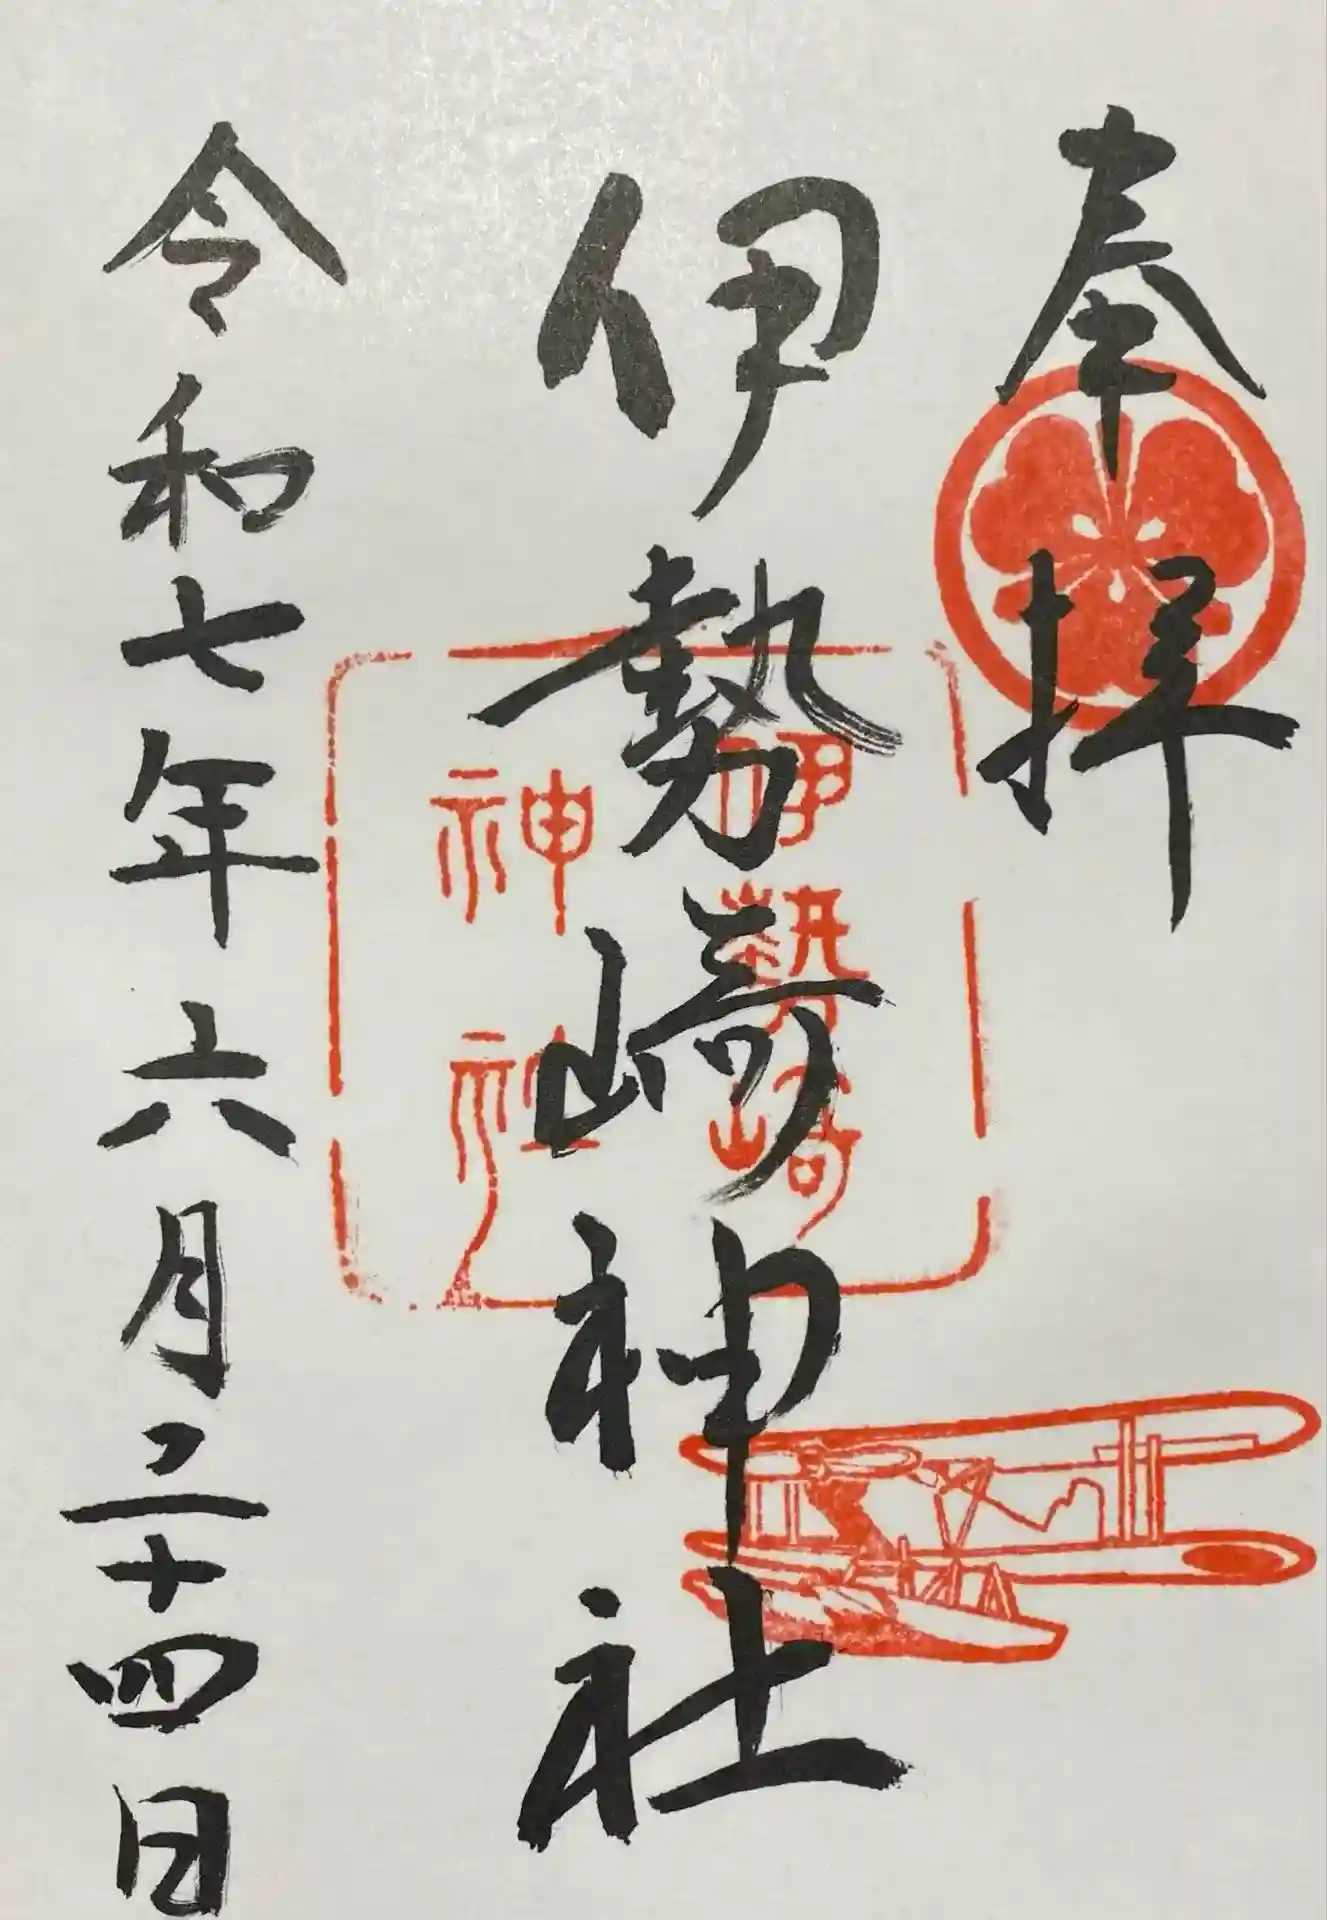 奉拝
伊勢崎神社
伊勢崎
神社
令和七年六月二十四日